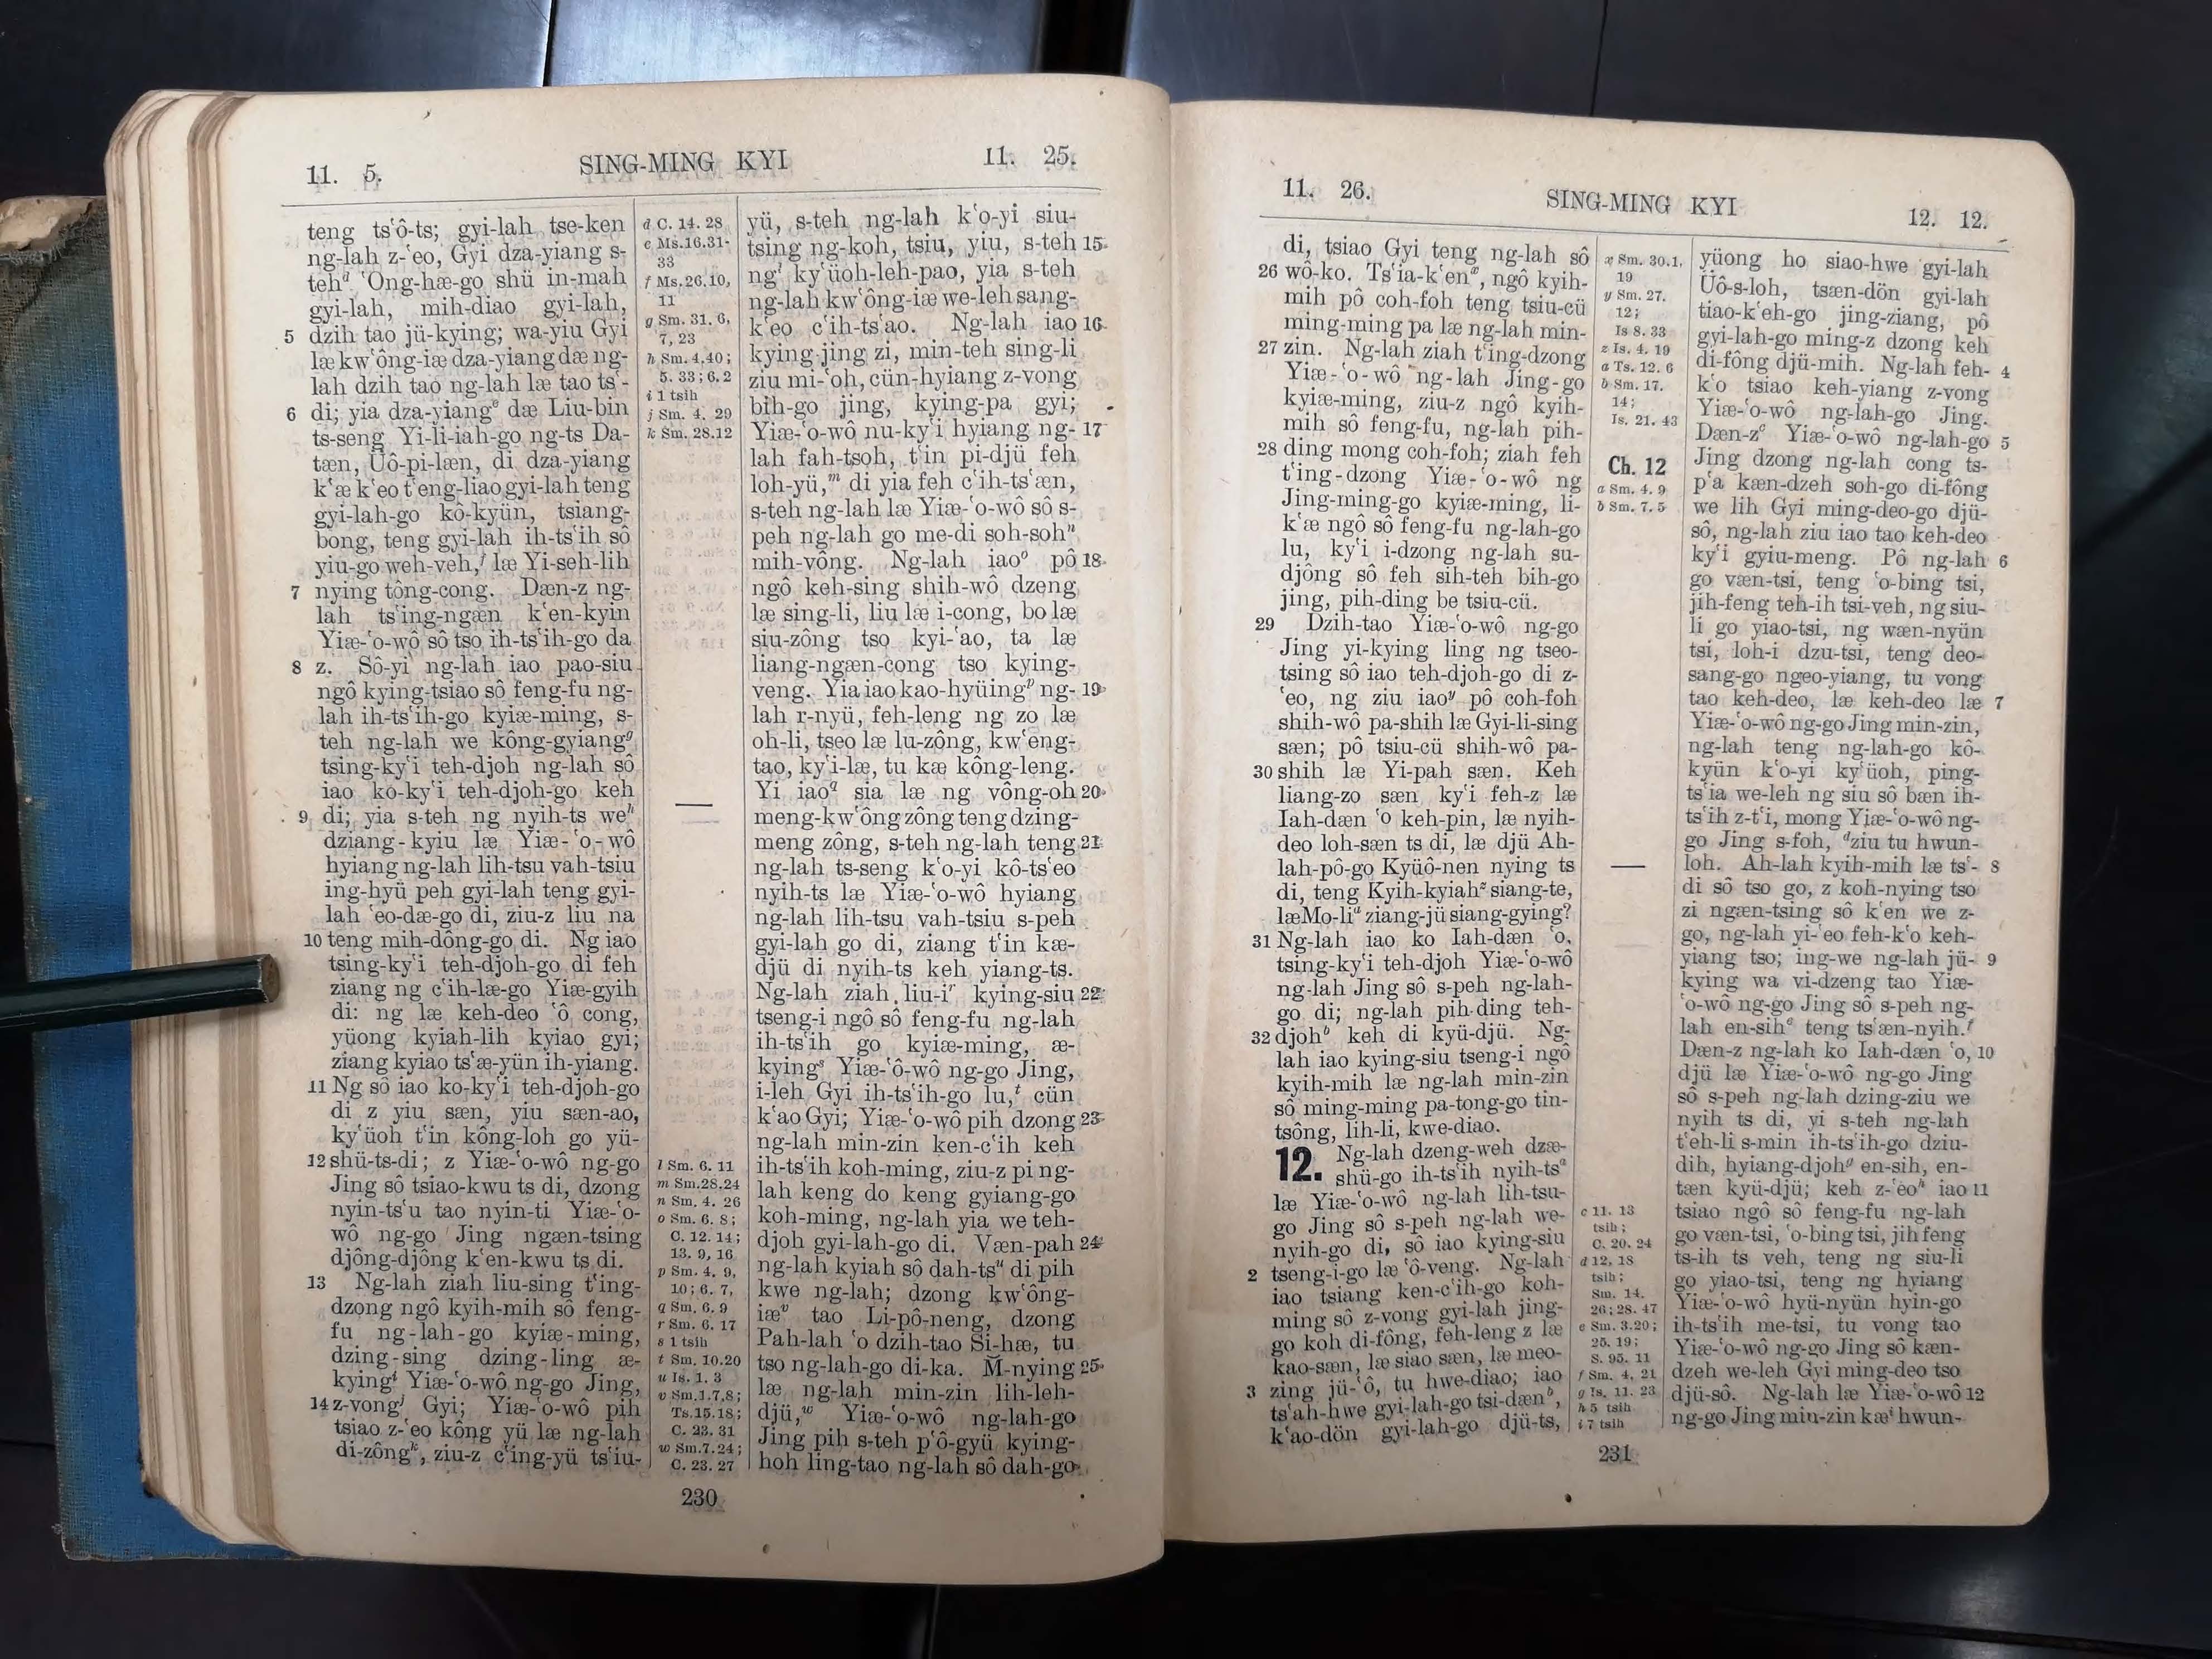 11. 5.
SING-MING KYI
11. 25.
teng ts‘ô-ts; gyi-lah tse-ken
ng-lah z-‘eo, Gyi dza-yiang s-
tehᵈ ‘Ong-hæ-go shü in-mah
gyi-lah, mih-diao gyi-lah,
5 dzih tao jü-kying; wa-yiu Gyi
læ kw‘ông-iæ dza-yiang dæ ng-
lah dzih tao ng-lah læ tao ts‘-
6 di; yia dza-yiangᵉ dæ Liu-bin
ts-seng Yi-li-iah-go ng-ts Da-
tæn, Üô-pi-læn, di dza-yiang
k‘æ k‘eo t‘eng-liao gyi-lah teng
gyi-lah-go kô-kyün, tsiang-
bong, teng gyi-lah ih-ts‘ih sô
yiu-go weh-veh,ᶠ læ Yi-seh-lih
7 nying tông-cong. Dæn-z ng-
lah ts‘ing-ngæn k‘en-kyin
Yiæ-‘o-wô sô tso ih-ts‘ih-go da
8 z. Sô-yi ng-lah iao pao-siu
ngô kying-tsiao sô feng-fu ng-
lah ih-ts‘ih-go kyiæ-ming, s-
teh ng-lah we kông-gyiangᵍ
tsing-ky‘i teh-djoh ng-lah sô
iao ko-ky‘i teh-djoh-go keh
9 di; yia s-teh ng nyih-ts weʰ
dziang-kyiu læ Yiæ-‘o-wô
hyiang ng-lah lih-tsu vah-tsiu
ing-hyü peh gyi-lah teng gyi-
lah ‘eo-dæ-go di, ziu-z liu na
10 teng mih-dông-go di. Ng iao
tsing-ky‘i teh-djoh-go di feh
ziang ng c‘ih-læ-go Yiæ-gyih
di: ng læ keh-deo ‘ô cong,
yüong kyiah-lih kyiao gyi;
ziang kyiao ts‘æ-yün ih-yiang.
11 Ng sô iao ko-ky‘i teh-djoh-go
di z yiu sæn, yiu sæn-ao,
ky‘üoh t‘in kông-loh go yü-
12 shü-ts-di; z Yiæ-‘o-wô ng-go
Jing sô tsiao-kwu ts di, dzong
nyin-ts‘u tao nyin-ti Yiæ-‘o-
wô ng-go Jing ngæn-tsing
djông-djông k‘en-kwu ts di.
13 Ng-lah ziah liu-sing t‘ing-
dzong ngô kyih-mih sô feng-
fu ng-lah-go kyiæ-ming,
dzing-sing dzing-ling æ-
kyingⁱ Yiæ-‘o-wô ng-go Jing,
14 z-vongʲ Gyi; Yiæ-‘o-wô pih
tsiao z-‘eo kông yü læ ng-lah
di-zôngᵏ, ziu-z c‘ing-yü ts‘iu-
d C. 14. 28
e Ms.16.31-
33
f Ms.26.10,
11
g Sm. 31. 6,
7, 23
h Sm. 4.40;
5. 33; 6. 2
i 1 tsih
j Sm. 4. 29
k Sm. 28.12
l Sm. 6. 11
m Sm.28.24
n Sm. 4. 26
o Sm. 6. 8;
C. 12. 14;
13. 9, 16
p Sm. 4. 9,
10; 6. 7,
q Sm. 6. 9
r Sm. 6. 17
s 1 tsih
t Sm. 10.20
u Is. 1. 3
v Sm.1.7,8;
Ts.15.18;
C. 23. 31
w Sm.7.24;
C. 23. 27
yü, s-teh ng-lah k‘o-yi siu-
tsing ng-koh, tsiu, yiu, s-teh 15
ngˡ ky‘üoh-leh-pao, yia s-teh
ng-lah kw‘ông-iæ we-leh sang-
k‘eo c‘ih-ts‘ao. Ng-lah iao 16
kying-jing zi, min-teh sing-li
ziu mi-‘oh, cün-hyiang z-vong
bih-go jing, kying-pa gyi;
Yiæ-‘o-wô nu-ky‘i hyiang ng- 17
lah fah-tsoh, t‘in pi-djü feh
loh-yü,ᵐ di yia feh c‘ih-ts‘æn,
s-teh ng-lah læ Yiæ-‘o-wô sô s-
peh ng-lah go me-di soh-sohⁿ
mih-vông. Ng-lah iaoᵒ pô 18
ngô keh-sing shih-wô dzeng
læ sing-li, liu læ i-cong, bo læ
siu-zông tso kyi-‘ao, ta læ
liang-ngæn-cong tso kying-
veng. Yia iao kao-hyüingᵖ ng- 19
lah r-nyü, feh-leng ng zo læ
oh-li, tseo læ lu-zông, kw‘eng-
tao, ky‘i-læ, tu kæ kông-leng.
Yi iao^q sia læ ng vông-oh 20
meng-kw‘ông zông teng dzing-
meng zông, s-teh ng-lah teng 21
ng-lah ts-seng k‘o-yi kô-ts‘eo
nyih-ts læ Yiæ-‘o-wô hyiang
ng-lah lih-tsu vah-tsiu s-peh
gyi-lah go di, ziang t‘in kæ-
djü di nyih-ts keh yiang-ts.
Ng-lah ziah liu-iʳ kying-siu 22
tseng-i ngô sô feng-fu ng-lah
ih-ts‘ih go kyiæ-ming, æ-
kyingˢ Yiæ-‘ô-wô ng-go Jing,
i-leh Gyi ih-ts‘ih-go lu,ᵗ cün
k‘ao Gyi; Yiæ-‘o-wô pih dzong 23
ng-lah min-zin ken-c‘ih keh
ih-ts‘ih koh-ming, ziu-z pi ng-
lah keng do keng gyiang-go
koh-ming, ng-lah yia we teh-
djoh gyi-lah-go di. Væn-pah 24
ng-lah kyiah sô dah-tsᵘ di pih
kwe ng-lah; dzong kw‘ông-
iæᵛ tao Li-pô-neng, dzong
Pah-lah ‘o dzih-tao Si-hæ, tu
tso ng-lah-go di-ka. M̆-nying 25
læ ng-lah min-zin lih-leh-
djü,ʷ Yiæ-‘o-wô ng-lah-go
Jing pih s-teh p‘ô-gyü kying-
hoh ling-tao ng-lah sô dah-go
230
11. 26.
SING-MING KYI
12. 12.
di, tsiao Gyi teng ng-lah sô
26 wô-ko. Ts‘ia-k‘enˣ, ngô kyih-
mih pô coh-foh teng tsiu-cü
ming-ming pa læ ng-lah min-
27 zin. Ng-lah ziah t‘ing-dzong
Yiæ-‘o-wô ng-lah Jing-go
kyiæ-ming, ziu-z ngô kyih-
mih sô feng-fu, ng-lah pih-
28 ding mong coh-foh; ziah feh
t‘ing-dzong Yiæ-‘o-wô ng
Jing-ming-go kyiæ-ming, li-
k‘æ ngô sô feng-fu ng-lah-go
lu, ky‘i i-dzong ng-lah su-
djông sô feh sih-teh bih-go
jing, pih-ding be tsiu-cü.
29 Dzih-tao Yiæ-‘o-wô ng-go
Jing yi-kying ling ng tseo-
tsing sô iao teh-djoh-go di z-
‘eo, ng ziu iaoʸ pô coh-foh
shih-wô pa-shih læ Gyi-li-sing
sæn; pô tsiu-cü shih-wô pa-
30 shih læ Yi-pah sæn. Keh
liang-zo sæn ky‘i feh-z læ
Iah-dæn ‘o keh-pin, læ nyih-
deo loh-sæn ts di, læ djü Ah-
lah-pô-go Kyüô-nen nying ts
di, teng Kyih-kyiahᶻ siang-te,
læ Mo-liᵃ ziang-jü siang-gying?
31 Ng-lah iao ko Iah-dæn ‘o,
tsing-ky‘i teh-djoh Yiæ-‘o-wô
ng-lah Jing sô s-peh ng-lah-
go di; ng-lah pih-ding teh-
32 djohᵇ keh di kyü-djü. Ng-
lah iao kying-siu tseng-i ngô
kyih-mih læ ng-lah min-zin
sô ming-ming pa-tong-go tin-
tsông, lih-li, kwe-diao.
12. Ng-lah dzeng-weh dzæ-
shü-go ih-ts‘ih nyih-tsᵃ
læ Yiæ-‘o-wô ng-lah lih-tsu-
go Jing sô s-peh ng-lah we-
nyih-go di, sô iao kying-siu
tseng-i-go læ ‘ô-veng. Ng-lah
2 iao tsiang ken-c‘ih-go koh-
ming sô z-vong gyi-lah jing-
go koh di-fông, feh-leng z læ
kao-sæn, læ siao sæn, læ meo-
zing jü-‘ô, tu hwe-diao; iao
3 ts‘ah-hwe gyi-lah-go tsi-dænᵇ,
k‘ao-dön gyi-lah-go djü-ts,
x Sm. 30.1,
19
y Sm. 27.
12;
Is 8. 33
z Is. 4. 19
a Ts. 12. 6
b Sm. 17.
14;
Is. 21. 43
Ch. 12
a Sm. 4. 9
b Sm. 7. 5
c 11. 13
tsih;
C. 20. 24
d 12, 18
tsih;
Sm. 14.
26; 28. 47
e Sm. 3.20;
25. 19;
S. 95. 11
f Sm. 4, 21
g Is. 11. 23
h 5 tsih
i 7 tsih
yüong ho siao-hwe gyi-lah
Üô-s-loh, tsæn-dön gyi-lah
tiao-k‘eh-go jing-ziang, pô
gyi-lah-go ming-z dzong keh
di-fông djü-mih. Ng-lah feh- 4
k‘o tsiao keh-yiang z-vong
Yiæ-‘o-wô ng-lah-go Jing.
Dæn-zᶜ Yiæ-‘o-wô ng-lah-go 5
Jing dzong ng-lah cong ts-
p‘a kæn-dzeh soh-go di-fông
we lih Gyi ming-deo-go djü-
sô, ng-lah ziu iao tao keh-deo
ky‘i gyiu-meng. Pô ng-lah 6
go væn-tsi, teng ‘o-bing tsi,
jih-feng teh-ih tsi-veh, ng siu-
li go yiao-tsi, ng wæn-nyün
tsi, loh-i dzu-tsi, teng deo-
sang-go ngeo-yiang, tu vong
tao keh-deo, læ keh-deo læ 7
Yiæ-‘o-wô ng-go Jing min-zin,
ng-lah teng ng-lah-go kô-
kyün k‘o-yi ky‘üoh, ping-
ts‘ia we-leh ng siu sô bæn ih-
ts‘ih z-t‘i, mong Yiæ-‘o-wô ng-
go Jing s-foh, ᵈziu tu hwun-
loh. Ah-lah kyih-mih læ ts‘- 8
di sô tso go, z koh-nying tso
zi ngæn-tsing sô k‘en we z-
go, ng-lah yi-‘eo feh-k‘o keh-
yiang tso; ing-we ng-lah jü- 9
kying wa vi-dzeng tao Yiæ-
‘o-wô ng-go Jing sô s-peh ng-
lah en-sihᵉ teng ts‘æn-nyih.ᶠ
Dæn-z ng-lah ko Iah-dæn ‘o, 10
djü læ Yiæ-‘o-wô ng-go Jing
sô s-peh ng-lah dzing-ziu we
nyih ts di, yi s-teh ng-lah
t‘eh-li s-min ih-ts‘ih-go dziu-
dih, hyiang-djohᵍ en-sih, en-
tæn kyü-djü; keh z-‘eoʰ iao 11
tsiao ngô sô feng-fu ng-lah
go væn-tsi, ‘o-bing tsi, jih feng
ts-ih ts veh, teng ng siu-li
go yiao-tsi, teng ng hyiang
Yiæ-‘o-wô hyü-nyün hyin-go
ih-ts‘ih me-tsi, tu vong tao
Yiæ-‘o-wô ng-go Jing sô kæn-
dzeh we-leh Gyi ming-deo tso
djü-sô. Ng-lah læ Yiæ-‘o-wô 12
ng-go Jing min-zin kæⁱ hwun-
231